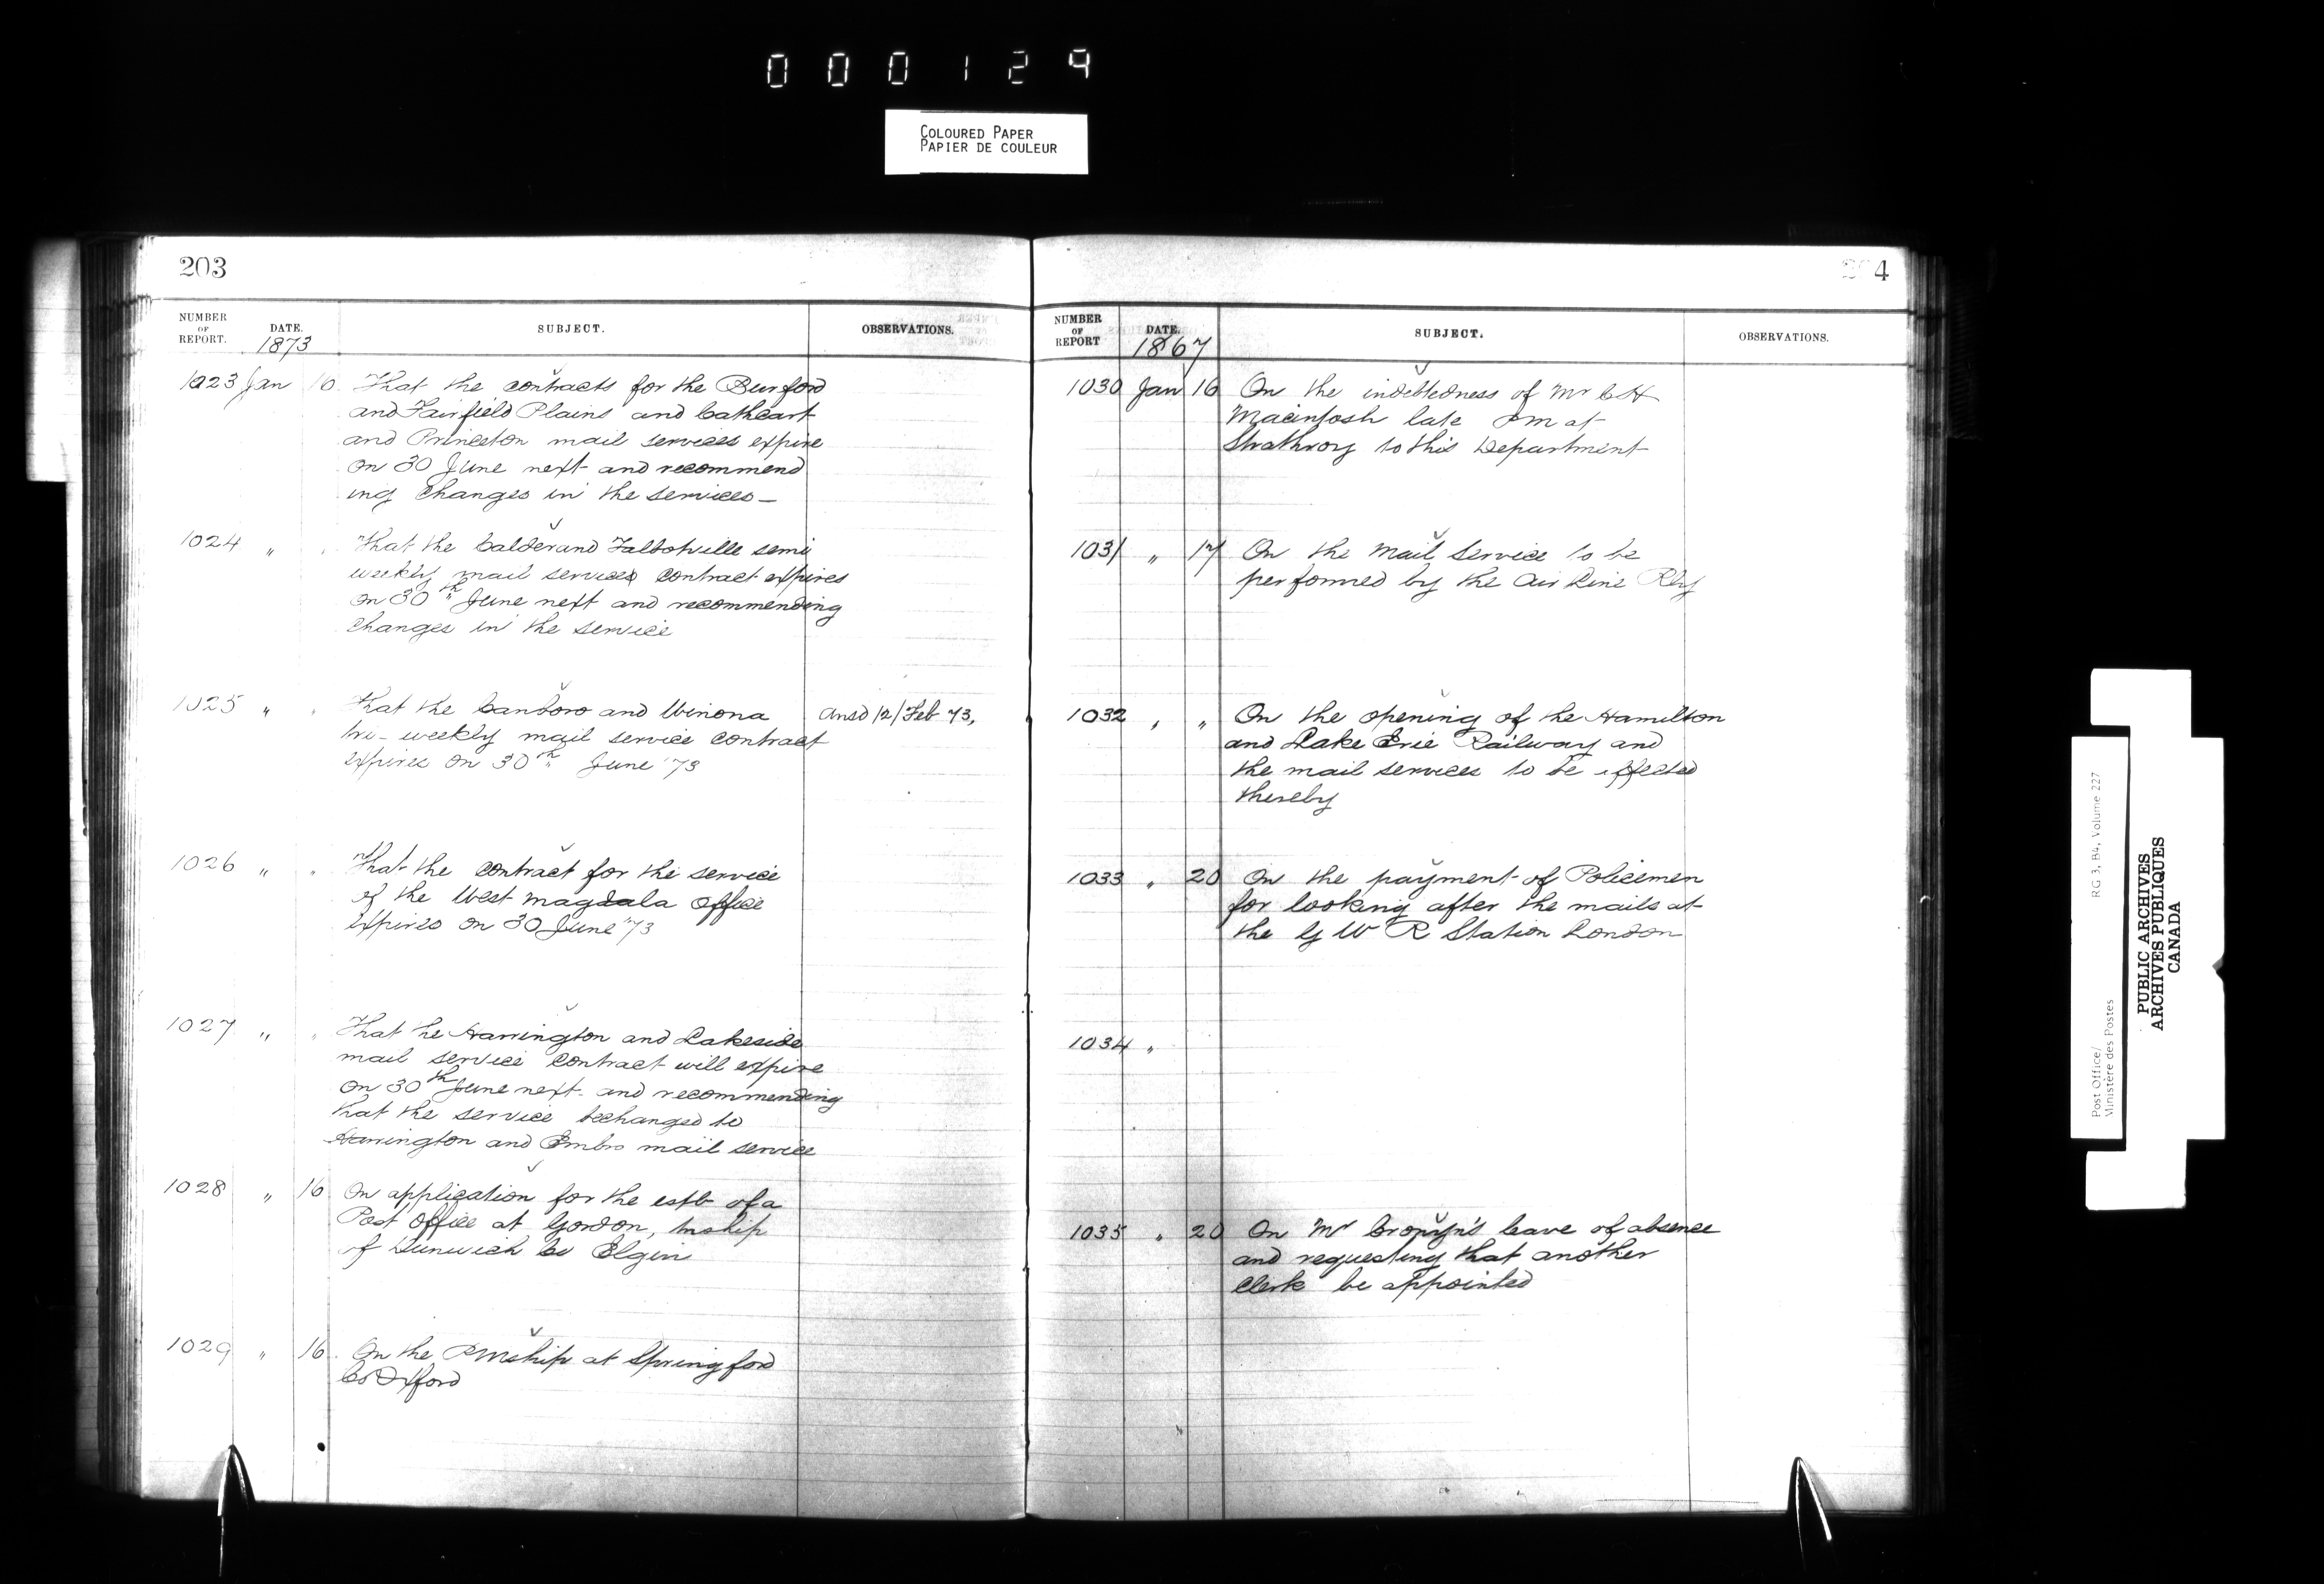 000129
COLOURED PAPER
PAPIER DE COULEUR
203
NUMBER OF REPORT. DATE. 1873 SUBJECT. OBSERVATIONS.
1023 Jan 16 That the contracts for the Burford
and Fairfield Plains and Cathcart
and Princeton mail services expire
on 30 June next and recommend
ing changes in the services—
1024 " " That the Calder and Talbotville semi
weekly mail services contract expires
on 30th June next and recommending
changes in the service
1025 " " That the Canboro and Winona Ansd 12/Feb 73,
tri-weekly mail service contract
expires on 30th June '73
1026 " " That the contract for the service
of the West Magdala office
expires on 30 June '73
1027 " " That the Harrington and Lakeside
mail service contract will expire
on 30th June next and recommending
that the service be changed to
Harrington and Embro mail service
1028 " 16 On application for the estb of a
Post Office at Gordon, tnship
of Dunwich Co Elgin
1029 " 16 On the PMship at Springford
Co Oxford
204
NUMBER OF REPORT DATE. 1867 SUBJECT. OBSERVATIONS.
1030 Jan 16 On the indebtedness of Mr C H
Macintosh late PM at
Strathroy to this Department
1031 " 17 On the Mail Service to be
performed by the Air Line Rly
1032 " " On the opening of the Hamilton
and Lake Erie Railway and
the mail services to be effected
thereby
1033 " 20 On the payment of Policemen
for looking after the mails at
the G W R Station London
1034 "
1035 " 20 On Mr Cronyn's leave of absence
and requesting that another
Clerk be appointed
Post Office/
Ministère des Postes
RG 3, B4, Volume 227
PUBLIC ARCHIVES
ARCHIVES PUBLIQUES
CANADA